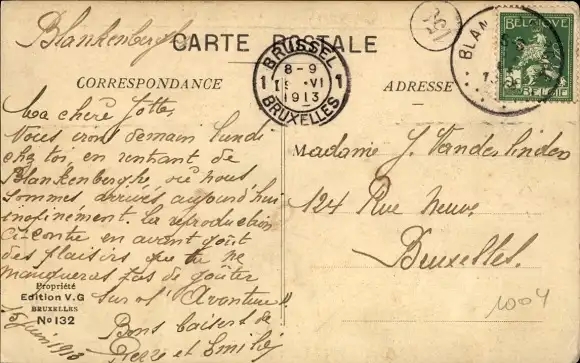 Blankenberghe
CARTE POSTALE
CORRESPONDANCE
ADRESSE
BRUSSEL
1 8-9 1
VI
1913
BRUXELLES
BLAN
BELGIQUE
5
BELGIË
Ma chère Lotte
Nous irons demain lundi
chez toi, en rentrant de
Blankenberghe où nous
sommes arrivés aujourd'hui
inopinément. La reproduction
ci-contre en avant goût
des plaisirs que tu ne
manqueras pas de goûter
sur l'"Aventure"!
Bons baisers de
Pierre et Emilie
15 juin 1913
Propriété
Edition V.G
BRUXELLES
No 132
Madame J. Vanderlinden
124 Rue Neuve
Bruxelles.
1004